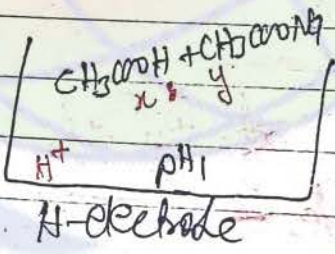 CH3COOH + CH3COONa
x : y
H+ pH1
H-electrode